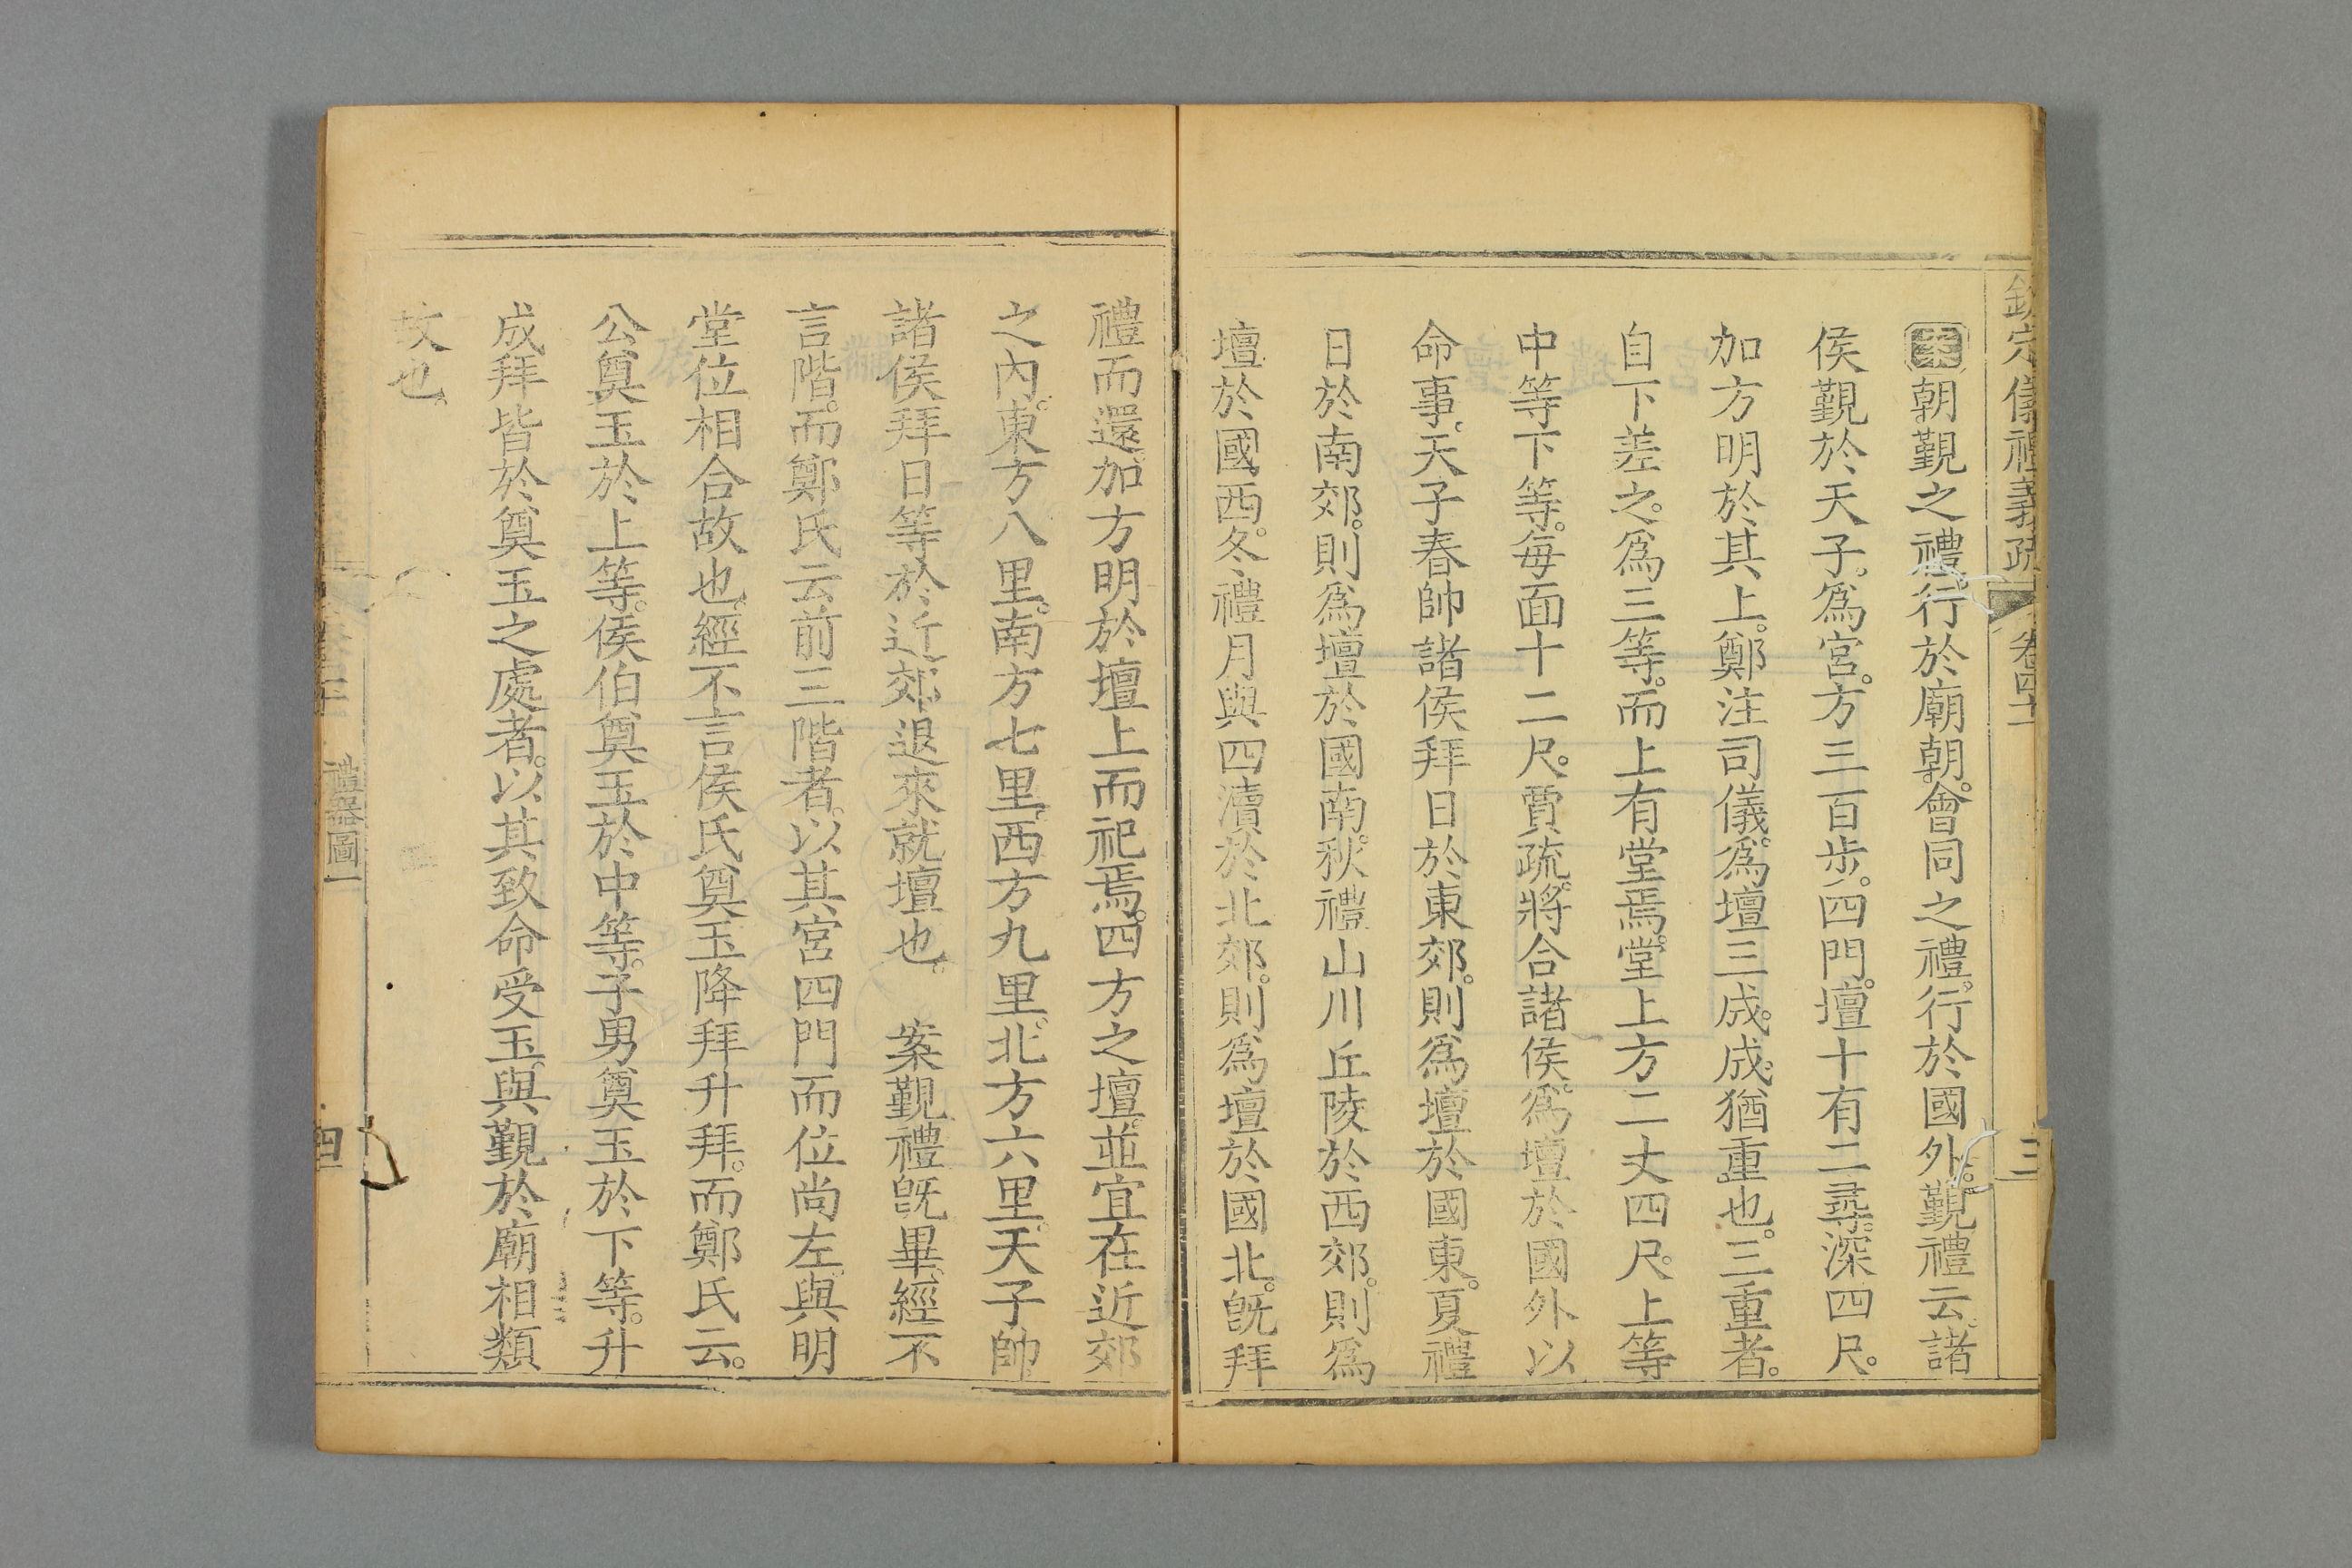 欽定儀禮義疏 卷四十 三
案朝覲之禮。行於廟朝。會同之禮。行於國外。覲禮云。諸
侯覲於天子。爲宮。方三百步。四門。壇十有二尋。深四尺。
加方明於其上。鄭注司儀。爲壇三成。成。猶重也。三重者。
自下差之。爲三等。而上有堂焉。堂上方二丈四尺。上等
中等下等。每面十二尺。賈疏。將合諸侯。爲壇於國外以
命事。天子春帥諸侯拜日於東郊。則爲壇於國東。夏禮
日於南郊。則爲壇於國南。秋禮山川丘陵於西郊。則爲
壇於國西。冬禮月與四瀆於北郊。則爲壇於國北。旣拜
禮而還。加方明於壇上而祀焉。四方之壇。並宜在近郊
之內。東方八里。南方七里。西方九里。北方六里。天子帥
諸侯拜日等於近郊。退來就壇也。 案覲禮旣畢。經不
言階。而鄭氏云前三階者。以其宮四門而位尚左。與明
堂位相合故也。經不言侯氏奠玉降拜升拜。而鄭氏云。
公奠玉於上等。侯伯奠玉於中等。子男奠玉於下等。升
成拜皆於奠玉之處者。以其致命受玉。與覲於廟相類
故也。
禮器圖一 四